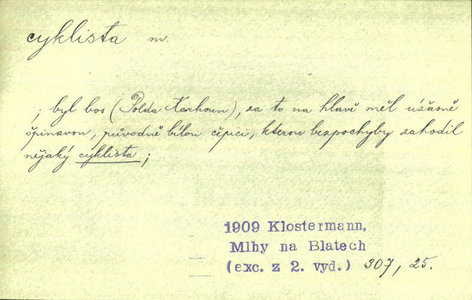 cyklista m.
; byl bos (Polda Kanhoun), za to na hlavě měl úžasně
špinavou, původně bílou čepici, kterou bezpochyby zahodil
nějaký cyklista;
1909 Klostermann,
Mlhy na Blatech
(exc. z 2. vyd.) 307, 25.